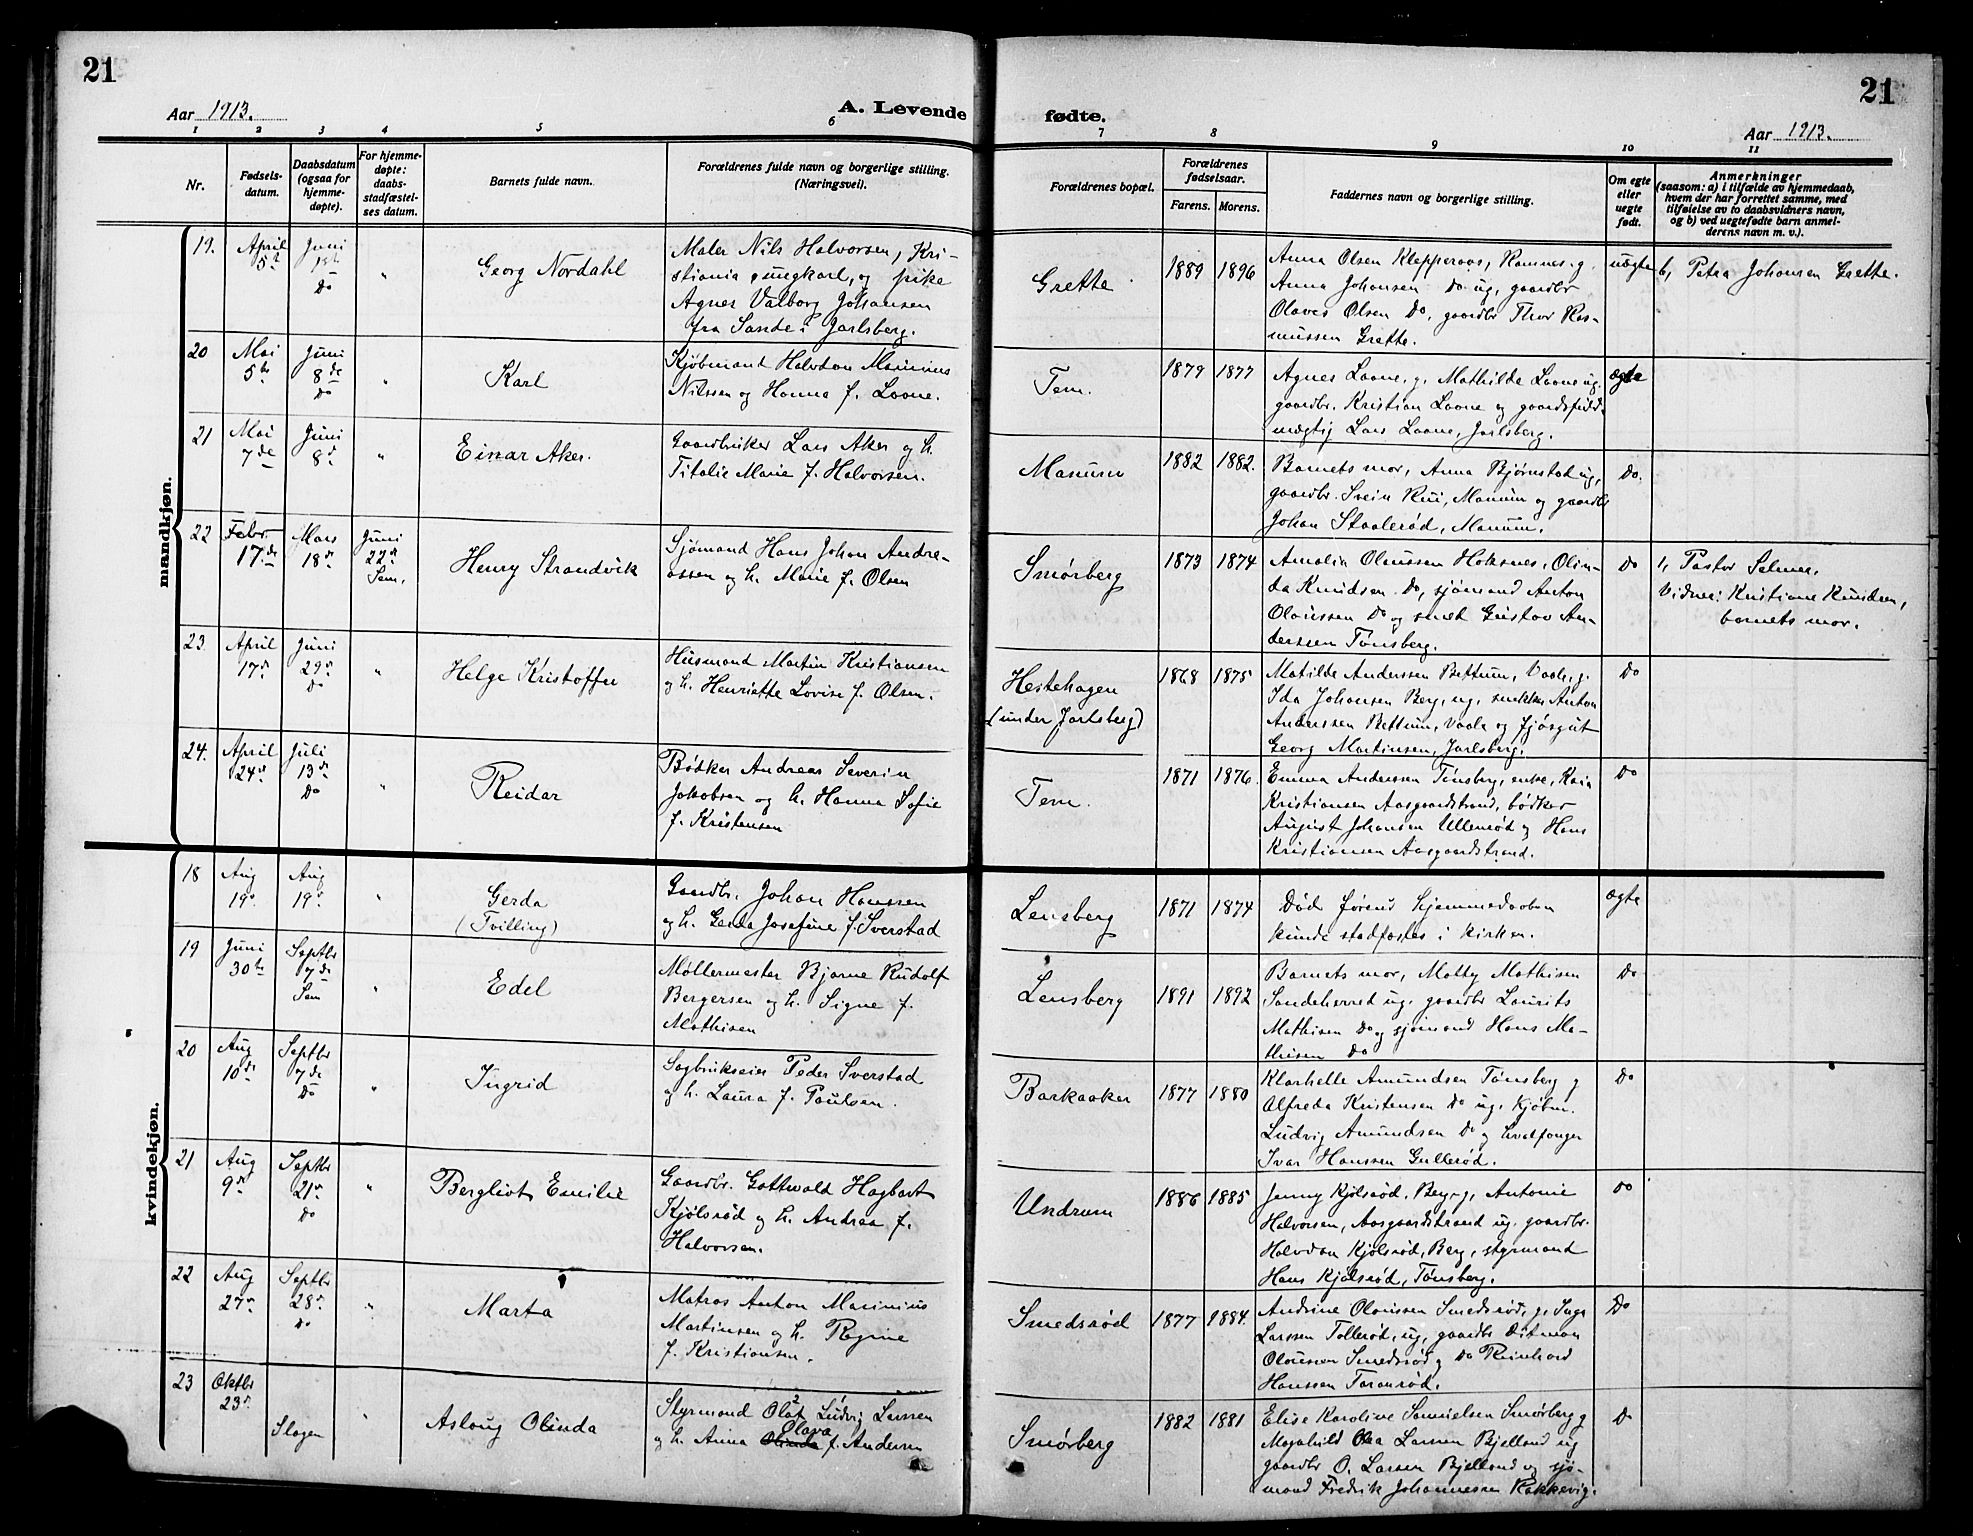 21
21
Aar 1913.
A. Levende
fødte.
Aar 1913.
1 2 3 4 5 6 7 8 9 10 11
Nr.
Fødsels-
datum.
Daabsdatum
(ogsaa for
hjemme-
døpte).
For hjemme-
døpte:
daabs-
stadfæstel-
ses datum.
Barnets fulde navn.
Forældrenes fulde navn og borgerlige stilling.
(Næringsvei).
Forældrenes bopæl.
Forældrenes
fødselsaar.
Farens. Morens.
Faddernes navn og borgerlige stilling.
Om egte
eller
uegte
født.
Anmerkninger
(saasom: a) i tilfælde av hjemmedaab,
hvem der har forrettet samme, med
tilføielse av to daabsvidners navn,
og b) ved uegtefødte barn anmel-
derens navn m. v.).
mandkjøn.
19.
April
5te
Juni
1ste
Do
"
Georg Nordahl
Maler Nils Halvorsen, Kri-
stiania, ungkarl, og pike
Agnes Valborg Johansen
fra Sande i Jarlsberg.
Grette
1889 1896
Anna Olsen Klepperaas, Ramnes g.
Anna Johansen Do ug, gaardbr
Olaves Olsen Do, gaardbr Thor Ras-
mussen Grette.
uegte
b, Petra Johansen Grette.
20
Mai
5te
Juni
8de
Do
"
Karl
Kjøbmand Halvdan Marinius
Nilssen og Hanna f. Laane.
Tem.
1879 1877
Agnes Laane, g. Mathilde Laane ug.
gaardbr. Kristian Laane og gaardsfuld-
mægtig Lars Laane, Jarlsberg.
ægte
21
Mai
7de
Juni
8de
"
Einar Aker.
Gaardbruker Lars Aker og h.
Titalie Marie f. Halvorsen.
Manum
1882 1882.
Barnets mor, Anna Bjørnstad ug,
gaardbr. Svein Rui, Manum og gaardbr
Johan Staalerød, Manum.
Do.
22
Febr.
17de
Mars
18de
Juni
22de
Sem.
Henry Strandvik
Sjömand Hans Johan Andre-
assen og h. Marie f. Olsen
Smørberg
1873 1874
Amalia Olaussen Hoksnes, Olin-
da Knudsen Do, sjømand Anton
Olaussen Do og smed Gustav An-
derssen Tønsberg.
Do
1, Pastor Selmer.
Vidner: Kristiane Knudsen,
barnets mor.
23.
April
17de
Juni
29de
Do
"
Helge Kristoffer
Husmand Martin Kristiansen
og h. Henriette Lovise f. Olsen.
Hestehagen
(under Jarlsberg)
1868 1875
Matilde Anderssen Bettum, Vaale, g.
Ida Johansen Berg, ug, snekker Anton
Anderssen Bettum, Vaale og fjøsgut
Georg Martinsen, Jarlsberg.
Do
24.
April
24de
Juli
13de
Do
"
Reidar
Bødker Andreas Severin
Jakobsen og h. Hanna Sofie
f. Kristensen
Tem.
1871 1876.
Emma Anderssen Tønsberg, enke, Kaia
Kristiansen Aasgaardstrand, bødker
August Johansen Ullenrød og Hans
Kristiansen Aasgaardstrand.
Do
kvindekjøn.
18
Aug
19de
Aug
19de
"
Gerda
(Tvilling)
Gaardbr. Johan Hanssen
og h. Gerda Josefine f. Sverstad
Lensberg
1871 1874
Død førend hjemmedaaben
kunde stadfæstes i kirken.
ægte
19
Juni
30te
Septbr
7de
Sem
"
Edel
Møllermester Bjarne Rudolf
Bergersen og h. Signe f.
Mathisen
Lensberg
1891 1892
Barnets mor, Matty Mathisen
Sandeherred ug. gaardbr Laurits
Mathisen Do og sjømand Hans Ma-
thisen Do
Do
20
Aug
10de
Septbr
7de
Do
"
Ingrid
Sagbrukseier Peder Sverstad
og h. Laura f. Paulsen.
Barkaaker
1877 1880
Klarhelle Amundsen Tønsberg g
Alfreda Kristensen Do ug. Kjøbm.
Ludvig Amundsen Do og hvalfanger
Ivar Hanssen Gullerød.
Do
21
Aug
9de
Septbr
21de
Do
"
Bergliot Emilie
Gaardbr. Gottwald Hagbart
Kjølsrød og h. Andrea f.
Halvorsen.
Undrum
1886 1885
Jenny Kjølsrød, Berg g, Antonie
Halvorsen, Aasgaardstrand ug. gaardbr.
Halvdan Kjølsrød, Berg, styrmand
Hans Kjølsrød, Tønsberg.
Do
22
Aug
27de
Septbr
28de
Do
"
Marta
Matros Anton Marinius
Martinsen og h. Regine
f. Kristiansen.
Smedsrød
1877 1884.
Andrine Olaussen Smedsrød, g, Inga
Larssen Tollerød, ug, gaardbr Ditman
Olaussen Smedsrød og Do Reinhard
Hanssen Taranrød.
Do
23
Oktbr
23de
Slagen
"
Aslaug Olinda
Styrmand Olaf Ludvig Larssen
og h. Anna Olinda Olava f. Andersen
Smørberg
1882 1881
Elise Karoline Samuelsen Smørberg g
Magnhild Olea Larsen Bjelland ug
gaardbr O. Larsen Bjelland og sjø-
mand Fredrik Johannessen Rakkevig.
Do